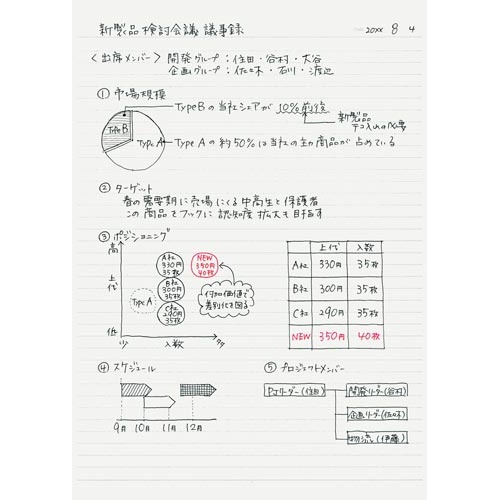 新製品検討会議 議事録
20XX 8 4
〈出席メンバー〉 開発グループ：住田・谷村・大谷
企画グループ：佐々木・石川・渡辺
① 市場規模
TypeBの当社シェアが 10%前後
新製品
テコ入れの必要
TypeB
TypeA
TypeAの約50%は当社の主力商品が占めている
② ターゲット
春の需要期に売場にくる中高生と保護者
この商品をフックに認知度拡大も目指す
③ ポジショニング
高
上代
低
少
入数
多
A社
330円
35枚
NEW
350円
40枚
B社
300円
35枚
TypeA
C社
290円
35枚
付加価値で
差別化を図る
上代 入数
A社 330円 35枚
B社 300円 35枚
C社 290円 35枚
NEW 350円 40枚
④ スケジュール
9月 10月 11月 12月
⑤ プロジェクトメンバー
PJリーダー(住田)
開発リーダー(谷村)
企画リーダー(佐々木)
物流(伊藤)